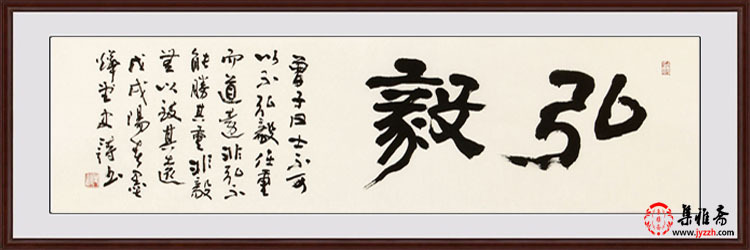 弘毅
曾子曰士不可
以不弘毅任重
而道遠非弘不
能勝其重非毅
無以致其遠
戊戌陽春墨
集雅斋
www.jyzzh.com